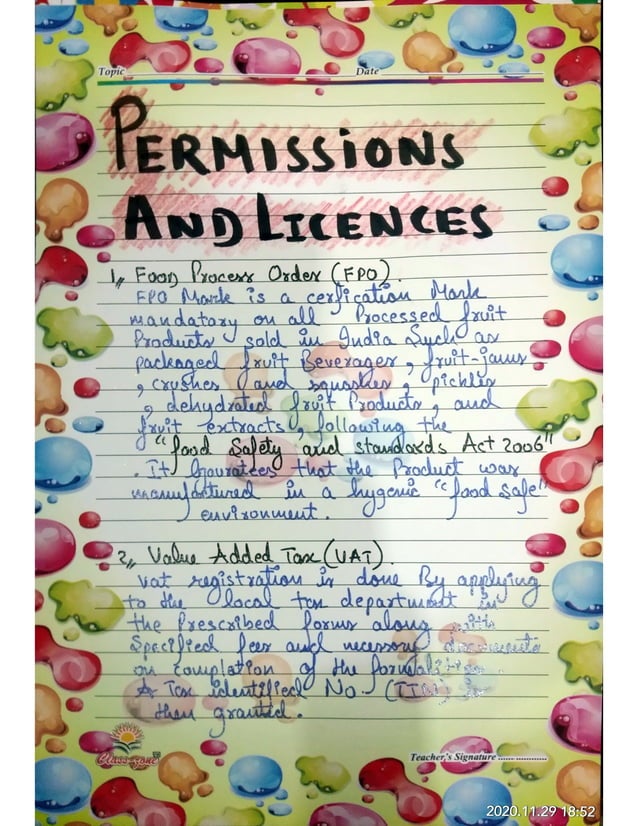 Topic Date
PERMISSIONS
AND LICENCES
1,, Food Process Order (FPO).
FPO Mark is a cerfication Mark
mandatory on all Processed fruit
Products sold in India Such as
packaged fruit Beverages, fruit-jams
, crushes and squashes, pickles
, dehydrated fruit Products, and
fruit extracts, following the
"food Safety and standards Act 2006"
. It Gauratees that the Product was
manufactured in a hygenic "food safe"
environment.
2,, Value Added Tax (VAT).
Vat registration is done By applying
to the local tax department in
the Prescribed forms along with
Specified fees and necessary documents
on completion of the formalities.
A Tax identified No. (TIN) is
then granted.
Classzone
Teacher's Signature ...... .............
2020.11.29 18:52